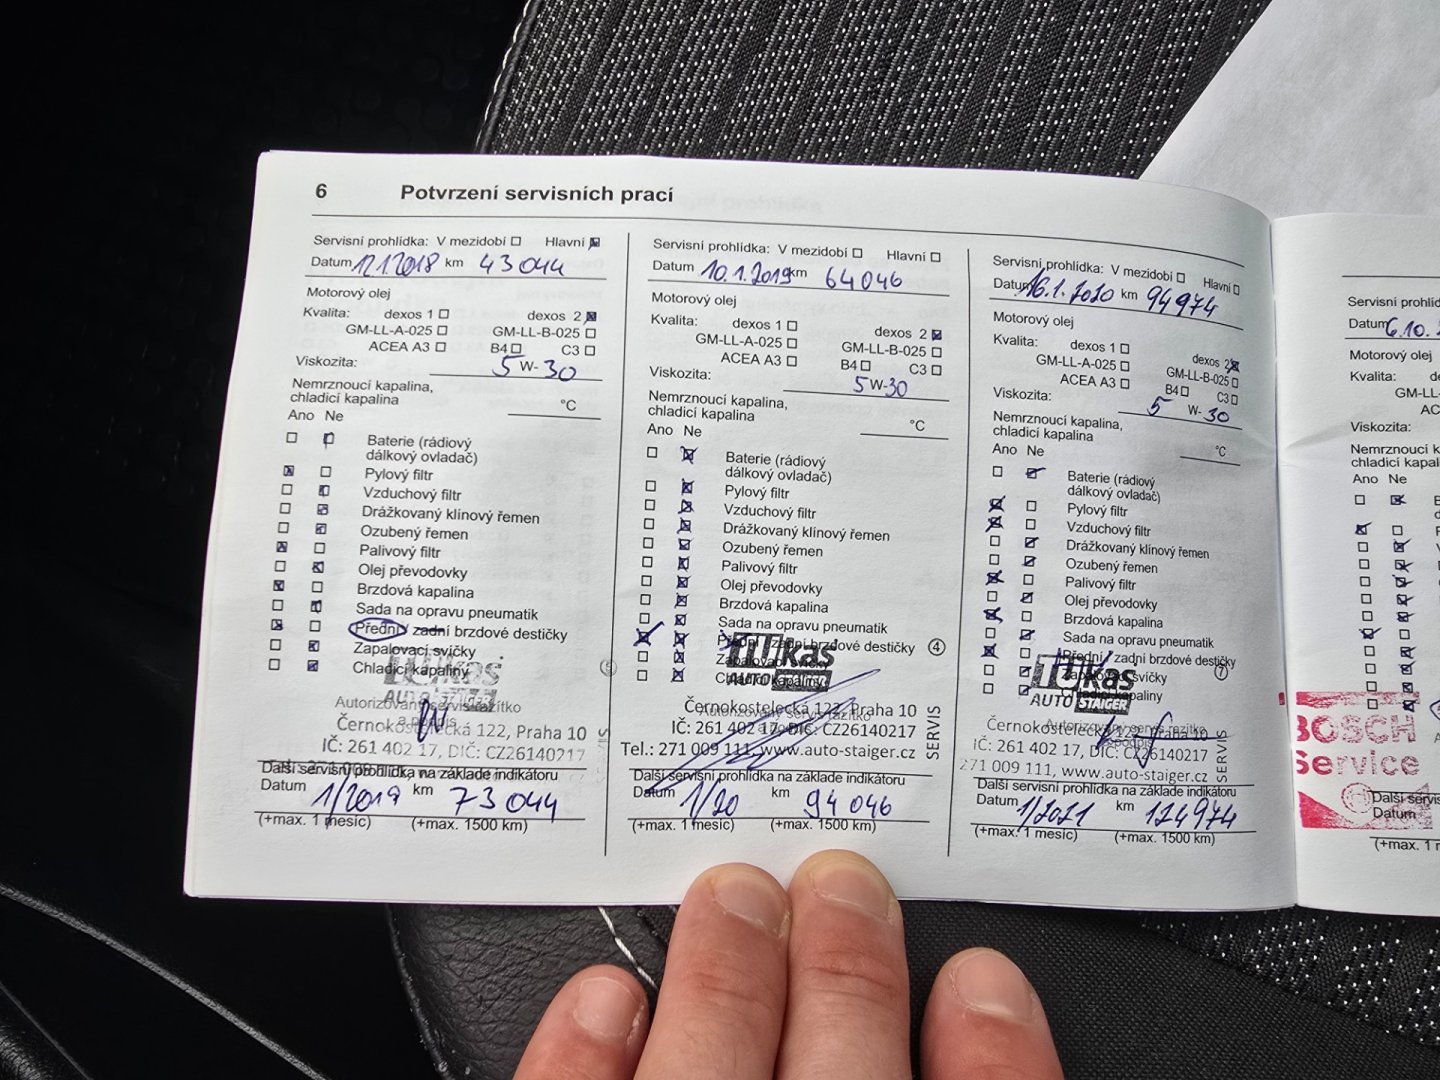 6 Potvrzení servisních prací
Servisní prohlídka: V mezidobí Hlavní
Datum 12.1.2018 km 43 044
Motorový olej
Kvalita: dexos 1 dexos 2
GM-LL-A-025 GM-LL-B-025
ACEA A3 B4 C3
Viskozita: 5 W- 30
Nemrznoucí kapalina,
chladicí kapalina °C
Ano Ne
Baterie (rádiový
dálkový ovladač)
Pylový filtr
Vzduchový filtr
Drážkovaný klínový řemen
Ozubený řemen
Palivový filtr
Olej převodovky
Brzdová kapalina
Sada na opravu pneumatik
Přední / zadní brzdové destičky
Zapalovací svíčky
Chladicí kapaliny
LUkas 5
AUTO STAIGER
Autorizovaný servis razítko
a podpis
Černokostelecká 122, Praha 10
IČ: 261 402 17, DIČ: CZ26140217
Další servisní prohlídka na základe indikátoru
Datum 1/2019 km 73 044
(+max. 1 mesíc) (+max. 1500 km)
Servisní prohlídka: V mezidobí Hlavní
Datum 10.1.2019 km 64 046
Motorový olej
Kvalita: dexos 1 dexos 2
GM-LL-A-025 GM-LL-B-025
ACEA A3 B4 C3
Viskozita: 5 W- 30
Nemrznoucí kapalina,
chladicí kapalina °C
Ano Ne
Baterie (rádiový
dálkový ovladač)
Pylový filtr
Vzduchový filtr
Drážkovaný klínový řemen
Ozubený řemen
Palivový filtr
Olej převodovky
Brzdová kapalina
Sada na opravu pneumatik
Přední / zadní brzdové destičky
Zapalovací svíčky
Chladicí kapaliny
LUkas 4
AUTO STAIGER
Černokostelecká 122, Praha 10
Autorizovaný servis razítko
IČ: 261 402 17, DIČ: CZ26140217
Tel.: 271 009 111, www.auto-staiger.cz
SERVIS
Další servisní prohlídka na základe indikátoru
Datum 1/20 km 94 046
(+max. 1 mesíc) (+max. 1500 km)
Servisní prohlídka: V mezidobí Hlavní
Datum 16.1.2020 km 94974
Motorový olej
Kvalita: dexos 1 dexos 2
GM-LL-A-025 GM-LL-B-025
ACEA A3 B4 C3
Viskozita: 5 W- 30
Nemrznoucí kapalina,
chladicí kapalina °C
Ano Ne
Baterie (rádiový
dálkový ovladač)
Pylový filtr
Vzduchový filtr
Drážkovaný klínový řemen
Ozubený řemen
Palivový filtr
Olej převodovky
Brzdová kapalina
Sada na opravu pneumatik
Přední / zadní brzdové destičky
Zapalovací svíčky
Chladicí kapaliny
LUkas 7
AUTO STAIGER
Autorizovaný servis razítko
a podpis
Černokostelecká 122, Praha 10
IČ: 261 402 17, DIČ: CZ26140217
271 009 111, www.auto-staiger.cz
SERVIS
Další servisní prohlídka na základe indikátoru
Datum 1/2021 km 124974
(+max. 1 mesíc) (+max. 1500 km)
Servisní prohlíd
Datum 6.10.
Motorový olej
Kvalita: de
GM-LL
AC
Viskozita:
Nemrznoucí kapalin
chladicí kapalina
Ano Ne
BOSCH
Service
Další servis
Datum
(+max. 1 m